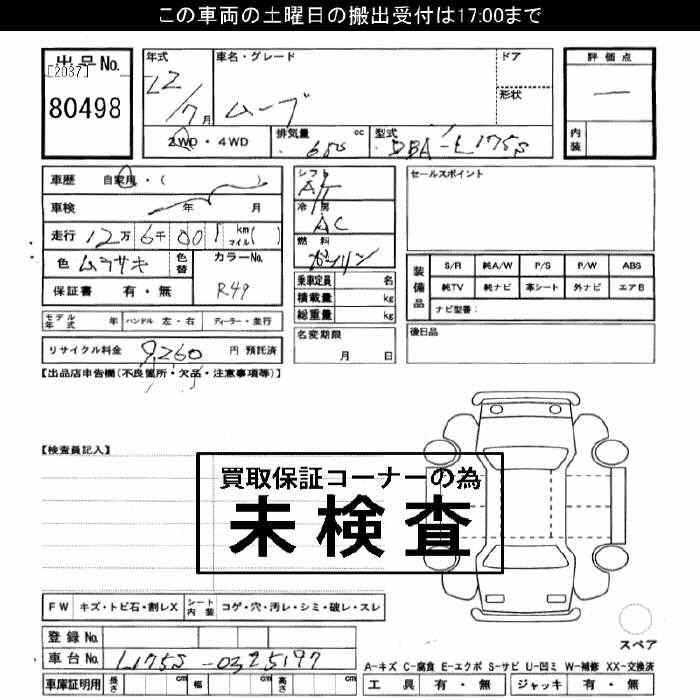 この車両の土曜日の搬出受付は17:00まで
出品No.
[2037]
80498
年式
22/7月
車名・グレード
ムーブ
ドア
形状
評価点
内装
2WD・4WD
排気量 cc
650
型式
DBA-L175S
車歴 自家用・( )
車検 年 月
走行 12万6千001 km マイル( )
色 ムラサキ 色替
カラーNo.
R49
保証書 有・無
シフト
AT
冷房
AC
燃料
ガソリン
乗車定員 名
積載量 kg
総重量 kg
セールスポイント
装備品
S/R 純A/W P/S P/W ABS
純TV 純ナビ 革シート 外ナビ エアB
ナビ型番:
モデル年式 年 ハンドル 左・右 ディーラー・並行
リサイクル料金 9,260 円 預託済
名変期限
月 日
後日品
【出品店申告欄(不良箇所・欠品・注意事項等)】
【検査員記入】
買取保証コーナーの為
未検査
FW キズ・トビ石・割レX シート内装 コゲ・穴・汚レ・シミ・破レ・スレ
登録No.
車台No. L175S-0325197
車庫証明用 長さ cm 幅 cm 高さ cm
スペア
A-キズ C-腐食 E-エクボ S-サビ U-凹ミ W-補修 XX-交換済
工具 有・無 ジャッキ 有・無